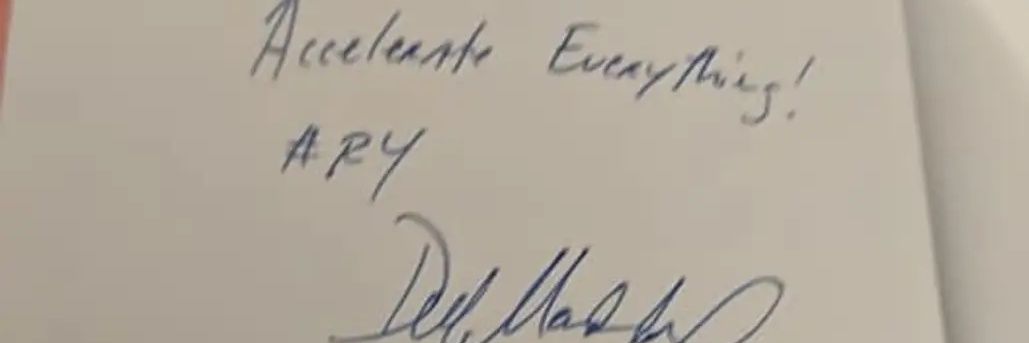 Accelerate Everything!
ARY